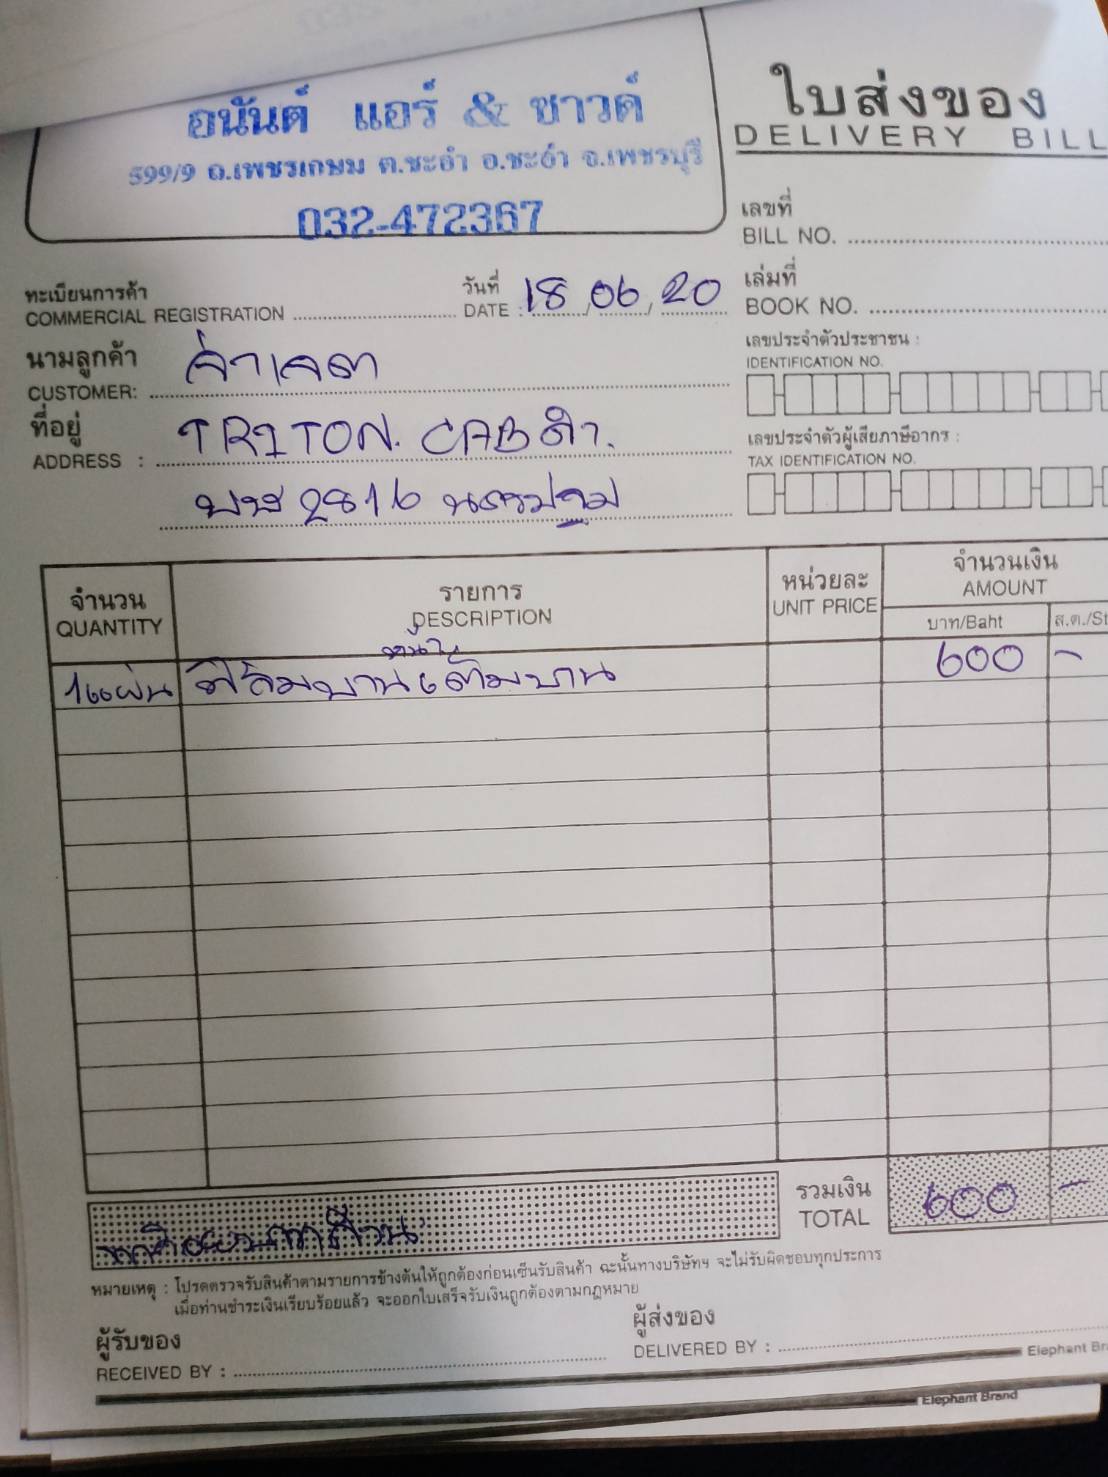 อนันต์ แอร์ & ซาวด์
599/9 ถ.เพชรเกษม ต.ชะอำ อ.ชะอำ จ.เพชรบุรี
032-472367
ใบส่งของ
DELIVERY BILL
เลขที่
BILL NO.
ทะเบียนการค้า
COMMERCIAL REGISTRATION
วันที่
DATE : 18/06/20
เล่มที่
BOOK NO.
นามลูกค้า
CUSTOMER: จ่าเจต
เลขประจำตัวประชาชน :
IDENTIFICATION NO.
ที่อยู่
ADDRESS : TRITON. CAB ดำ.
2816 นครปฐม
เลขประจำตัวผู้เสียภาษีอากร :
TAX IDENTIFICATION NO.
จำนวน
QUANTITY
รายการ
DESCRIPTION
หน่วยละ
UNIT PRICE
จำนวนเงิน
AMOUNT
บาท/Baht
ส.ต./St
1แผ่น ฟิล์มบาน เต็มบาน 600 -
รวมเงิน
TOTAL
600 -
หมายเหตุ : โปรดตรวจรับสินค้าตามรายการข้างต้นให้ถูกต้องก่อนเซ็นรับสินค้า ฉะนั้นทางบริษัทฯ จะไม่รับผิดชอบทุกประการ
เมื่อท่านชำระเงินเรียบร้อยแล้ว จะออกใบเสร็จรับเงินถูกต้องตามกฎหมาย
ผู้รับของ
RECEIVED BY :
ผู้ส่งของ
DELIVERED BY :
Elephant Bra
Elephant Brand